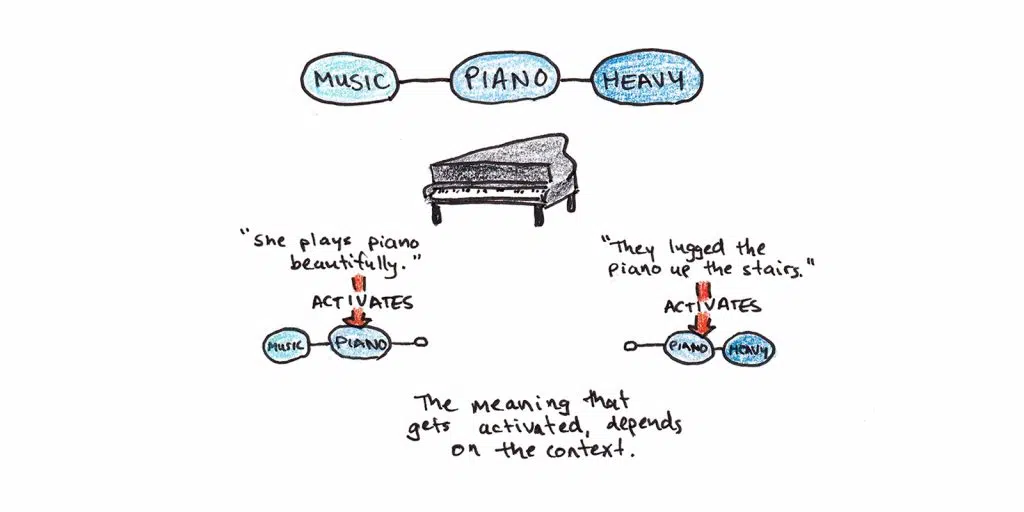 MUSIC PIANO HEAVY
"She plays piano
beautifully."
ACTIVATES
MUSIC PIANO
"They lugged the
piano up the stairs."
ACTIVATES
PIANO HEAVY
The meaning that
gets activated, depends
on the context.